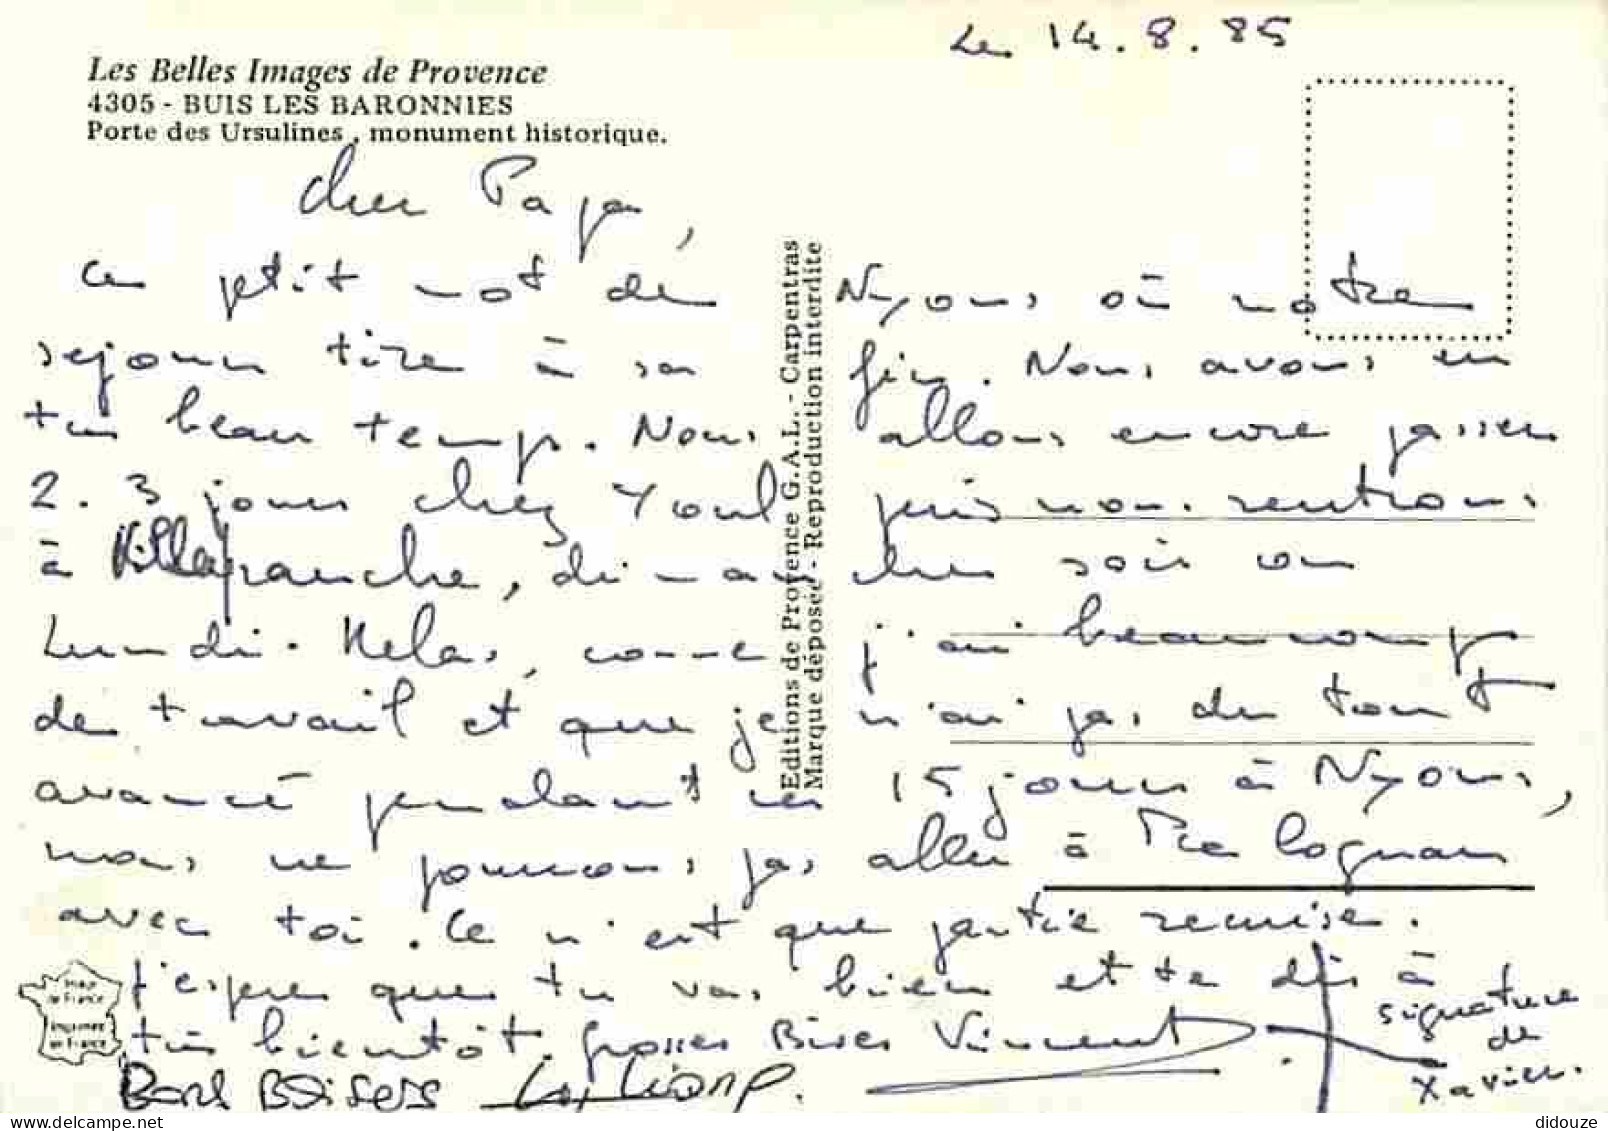 Le 14.8.85
Les Belles Images de Provence
4305 - BUIS LES BARONNIES
Porte des Ursulines, monument historique.
Cher Papa,
Ce petit mot de Nyons où notre
sejour tire à sa fin. Nous avons eu
très beau temps. Nous allons encore passer
2. 3 jours chez Youl puis nous rentrons
à Villefranche, dimanche soir ou
Lundi. Helas, comme j'ai beaucoup
de travail et que je n'ai pas du tout
avancé pendant ces 15 jours à Nyons,
nous ne pourrons pas aller à Pralognan
avec toi. Ce n'est que partie remise.
J'espère que tu vas bien et te dis à
très bientôt. Grosses Bises Vincent
signature de Xavier.
Bons Baisers
Editions de Provence G.A.L. - Carpentras
Marque déposée - Reproduction interdite
Imprimé en France
didouze